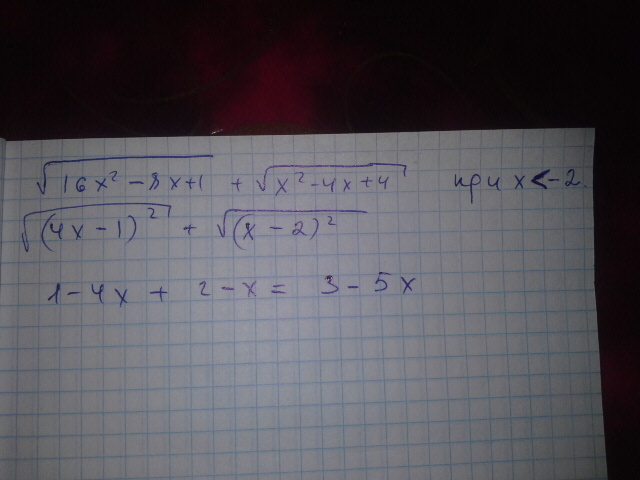 √16x² - 8x + 1 + √x² - 4x + 4 при x < -2
√(4x - 1)² + √(x - 2)²
1 - 4x + 2 - x = 3 - 5x